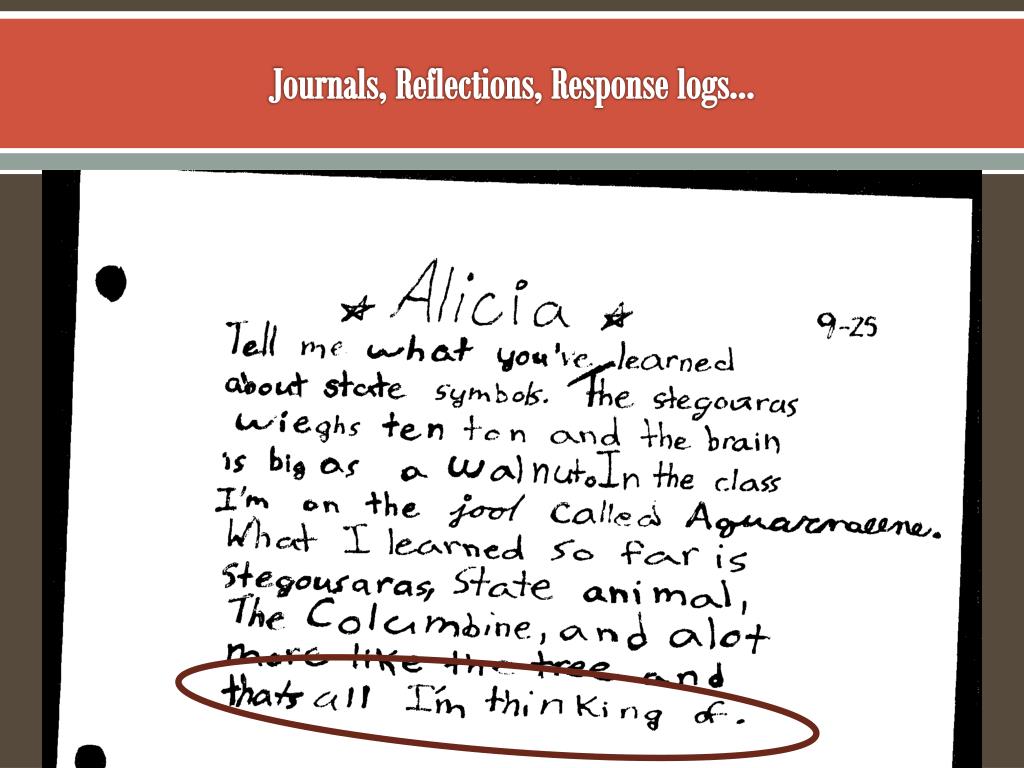 Journals, Reflections, Response logs...
Alicia
9-25
Tell me what you've learned
about state symbols. The stegouras
wieghs ten ton and the brain
is big as a walnut. In the class
I'm on the jool called Aquarmaene.
What I learned so far is
Stegousaras, State animal,
The Columbine, and alot
more like the tree and
thats all I'm thinking of.